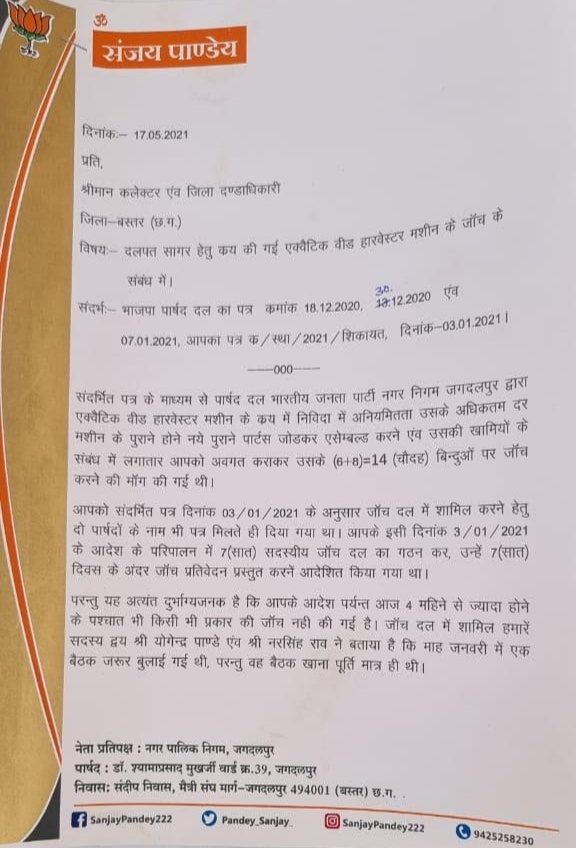 ॐ
संजय पाण्डेय
दिनांकः– 17.05.2021
प्रति,
श्रीमान कलेक्टर एंव जिला दण्डाधिकारी
जिला–बस्तर (छ.ग.)
विषयः– दलपत सागर हेतु कय की गई एक्वैटिक वीड हारवेस्टर मशीन के जॉच के
संबंध में।
संदर्भः– भाजपा पार्षद दल का पत्र कमांक 18.12.2020, 30.12.2020 एंव
07.01.2021, आपका पत्र क/स्था/2021/शिकायत, दिनांक–03.01.2021।
——000——
संदर्भित पत्र के माध्यम से पार्षद दल भारतीय जनता पार्टी नगर निगम जगदलपुर द्वारा
एक्वैटिक वीड हारवेस्टर मशीन के कय में निविदा में अनियमितता उसके अधिकतम दर
मशीन के पुराने होने नये पुराने पार्टस जोडकर एसेम्बल्ड करने एंव उसकी खामियों के
संबंध में लगातार आपको अवगत कराकर उसके (6+8)=14 (चौदह) बिन्दुओं पर जॉच
करने की मॉग की गई थी।
आपको संदर्भित पत्र दिनांक 03/01/2021 के अनुसार जॉच दल में शामिल करने हेतु
दो पार्षदों के नाम भी पत्र मिलते ही दिया गया था। आपके इसी दिनांक 3/01/2021
के आदेश के परिपालन में 7(सात) सदस्यीय जॉच दल का गठन कर, उन्हें 7(सात)
दिवस के अंदर जॉच प्रतिवेदन प्रस्तुत करनें आदेशित किया गया था।
परन्तु यह अत्यंत दुर्भाग्यजनक है कि आपके आदेश पर्यन्त आज 4 महिने से ज्यादा होने
के पश्चात भी किसी भी प्रकार की जॉच नही की गई है। जॉच दल में शामिल हमारें
सदस्य द्वय श्री योगेन्द्र पाण्डे एंव श्री नरसिंह राव ने बताया है कि माह जनवरी में एक
बैठक जरूर बुलाई गई थी, परन्तु वह बैठक खाना पूर्ति मात्र ही थी।
नेता प्रतिपक्ष : नगर पालिक निगम, जगदलपुर
पार्षद : डॉ. श्यामाप्रसाद मुखर्जी वार्ड क्र.39, जगदलपुर
निवास: संदीप निवास, मैत्री संघ मार्ग–जगदलपुर 494001 (बस्तर) छ.ग.
SanjayPandey222 Pandey_Sanjay_ SanjayPandey222 9425258230